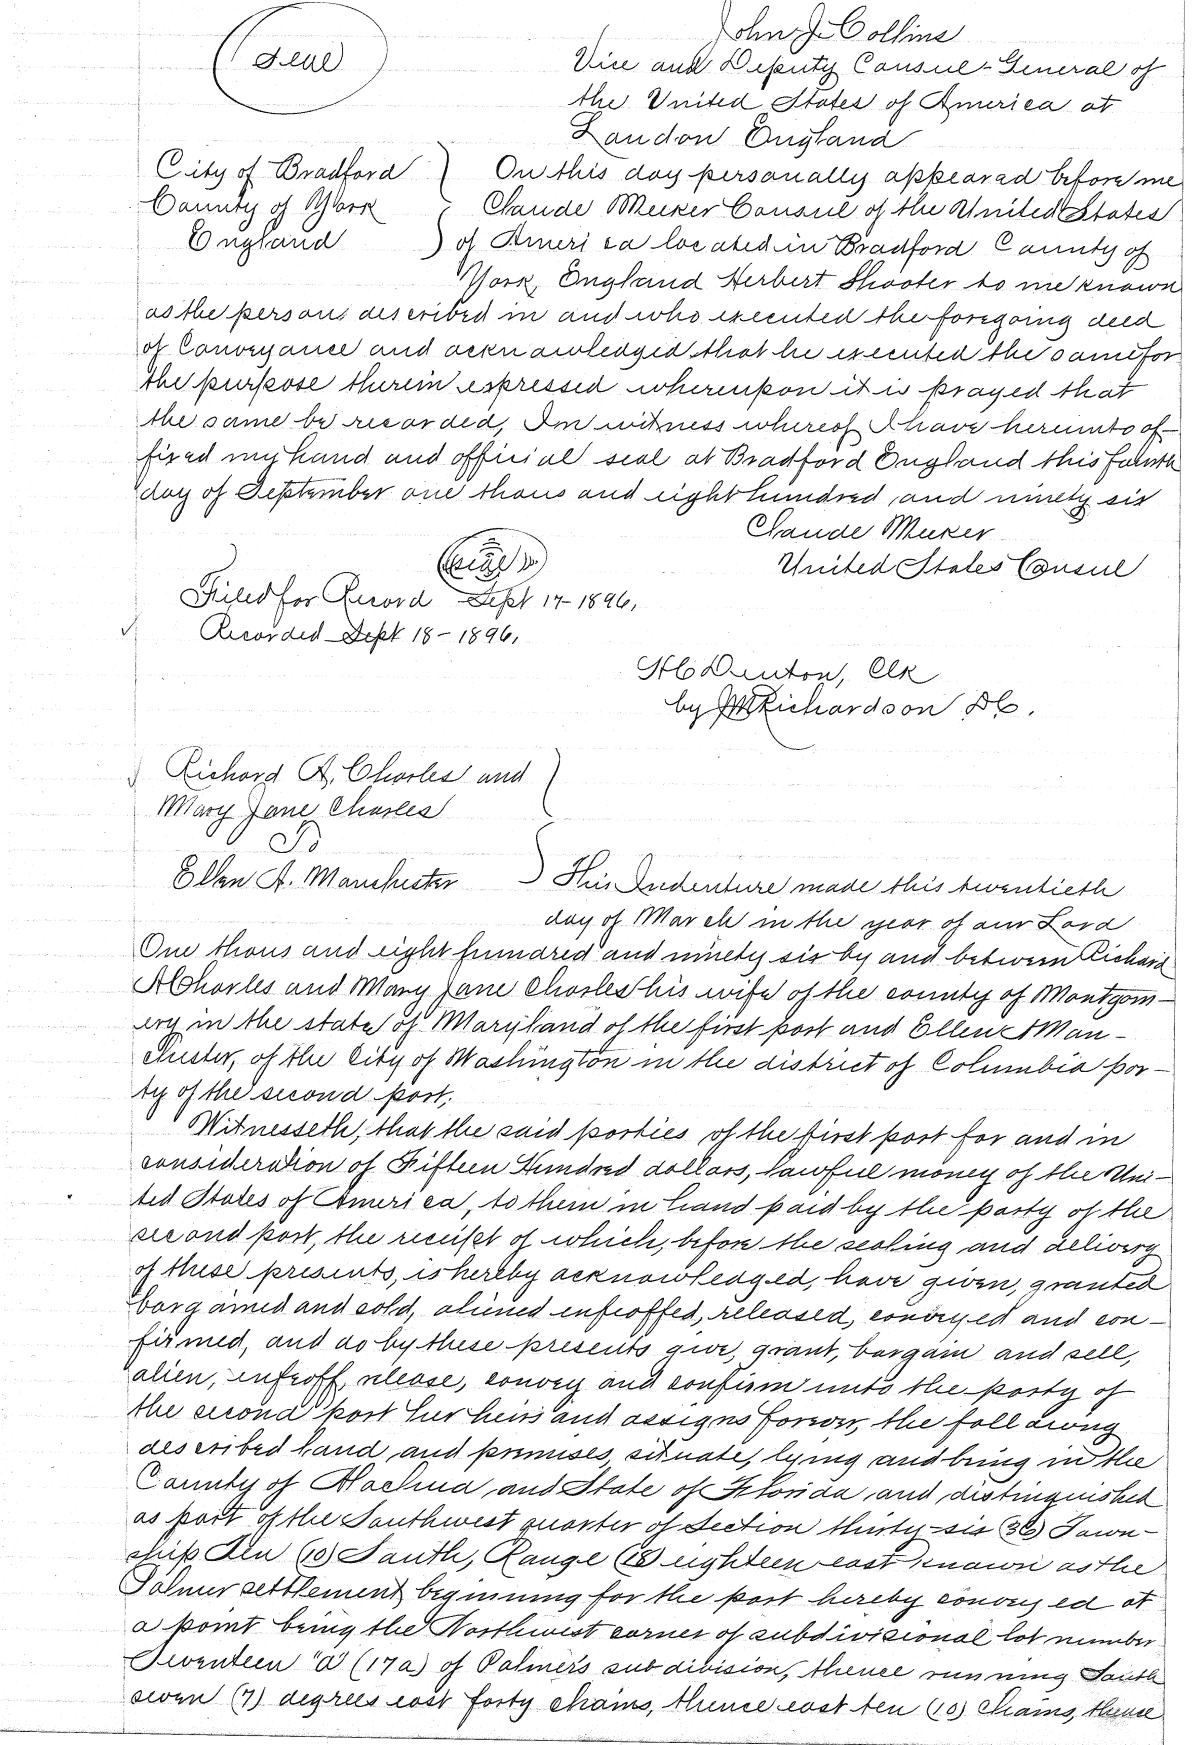 Seal
John J. Collins
Vice and Deputy Consul-General of
the United States of America at
London England
City of Bradford
County of York
England
On this day personally appeared before me
Claude Meeker Consul of the United States
of America located in Bradford County of
York, England Herbert Shooter to me known
as the persons described in and who executed the foregoing deed
of Conveyance and acknowledged that he executed the same for
the purpose therein expressed whereupon it is prayed that
the same be recorded, In witness whereof I have hereunto af-
fixed my hand and official seal at Bradford England this fourth
day of September one thousand eight hundred and ninety six
Claude Meeker
United States Consul
Seal
Filed for Record Sept 17-1896,
Recorded Sept 18-1896,
H C Denton, Clk
by M Richardson DC.
Richard A. Charles and
Mary Jane Charles
To
Ellen A. Manchester
This Indenture made this twentieth
day of March in the year of our Lord
One thousand eight hundred and ninety six by and between Richard
A Charles and Mary Jane Charles his wife of the county of Montgom-
ery in the state of Maryland of the first part and Ellen A Man-
chester, of the City of Washington in the district of Columbia par-
ty of the second part;
Witnesseth, that the said parties of the first part for and in
consideration of Fifteen Hundred dollars, lawful money of the Uni-
ted States of America, to them in hand paid by the party of the
second part, the receipt of which, before the sealing and delivery
of these presents, is hereby acknowledged, have given, granted
bargained and sold, aliened enfeoffed, released, conveyed and con-
firmed, and do by these presents give, grant, bargain and sell,
alien, enfeoff, release, convey and confirm unto the party of
the second part her heirs and assigns forever, the following
described land and premises, situate, lying and being in the
County of Alachua and State of Florida and distinguished
as part of the Southwest quarter of Section thirty-six (36) Town-
ship Ten (10) South, Range (18) eighteen east known as the
Palmer settlement beginning for the part hereby conveyed at
a point being the Northwest corner of subdivisional lot number
Seventeen "a" (17a) of Palmer's subdivision, thence running South
seven (7) degrees east forty chains, thence east ten (10) chains, thence